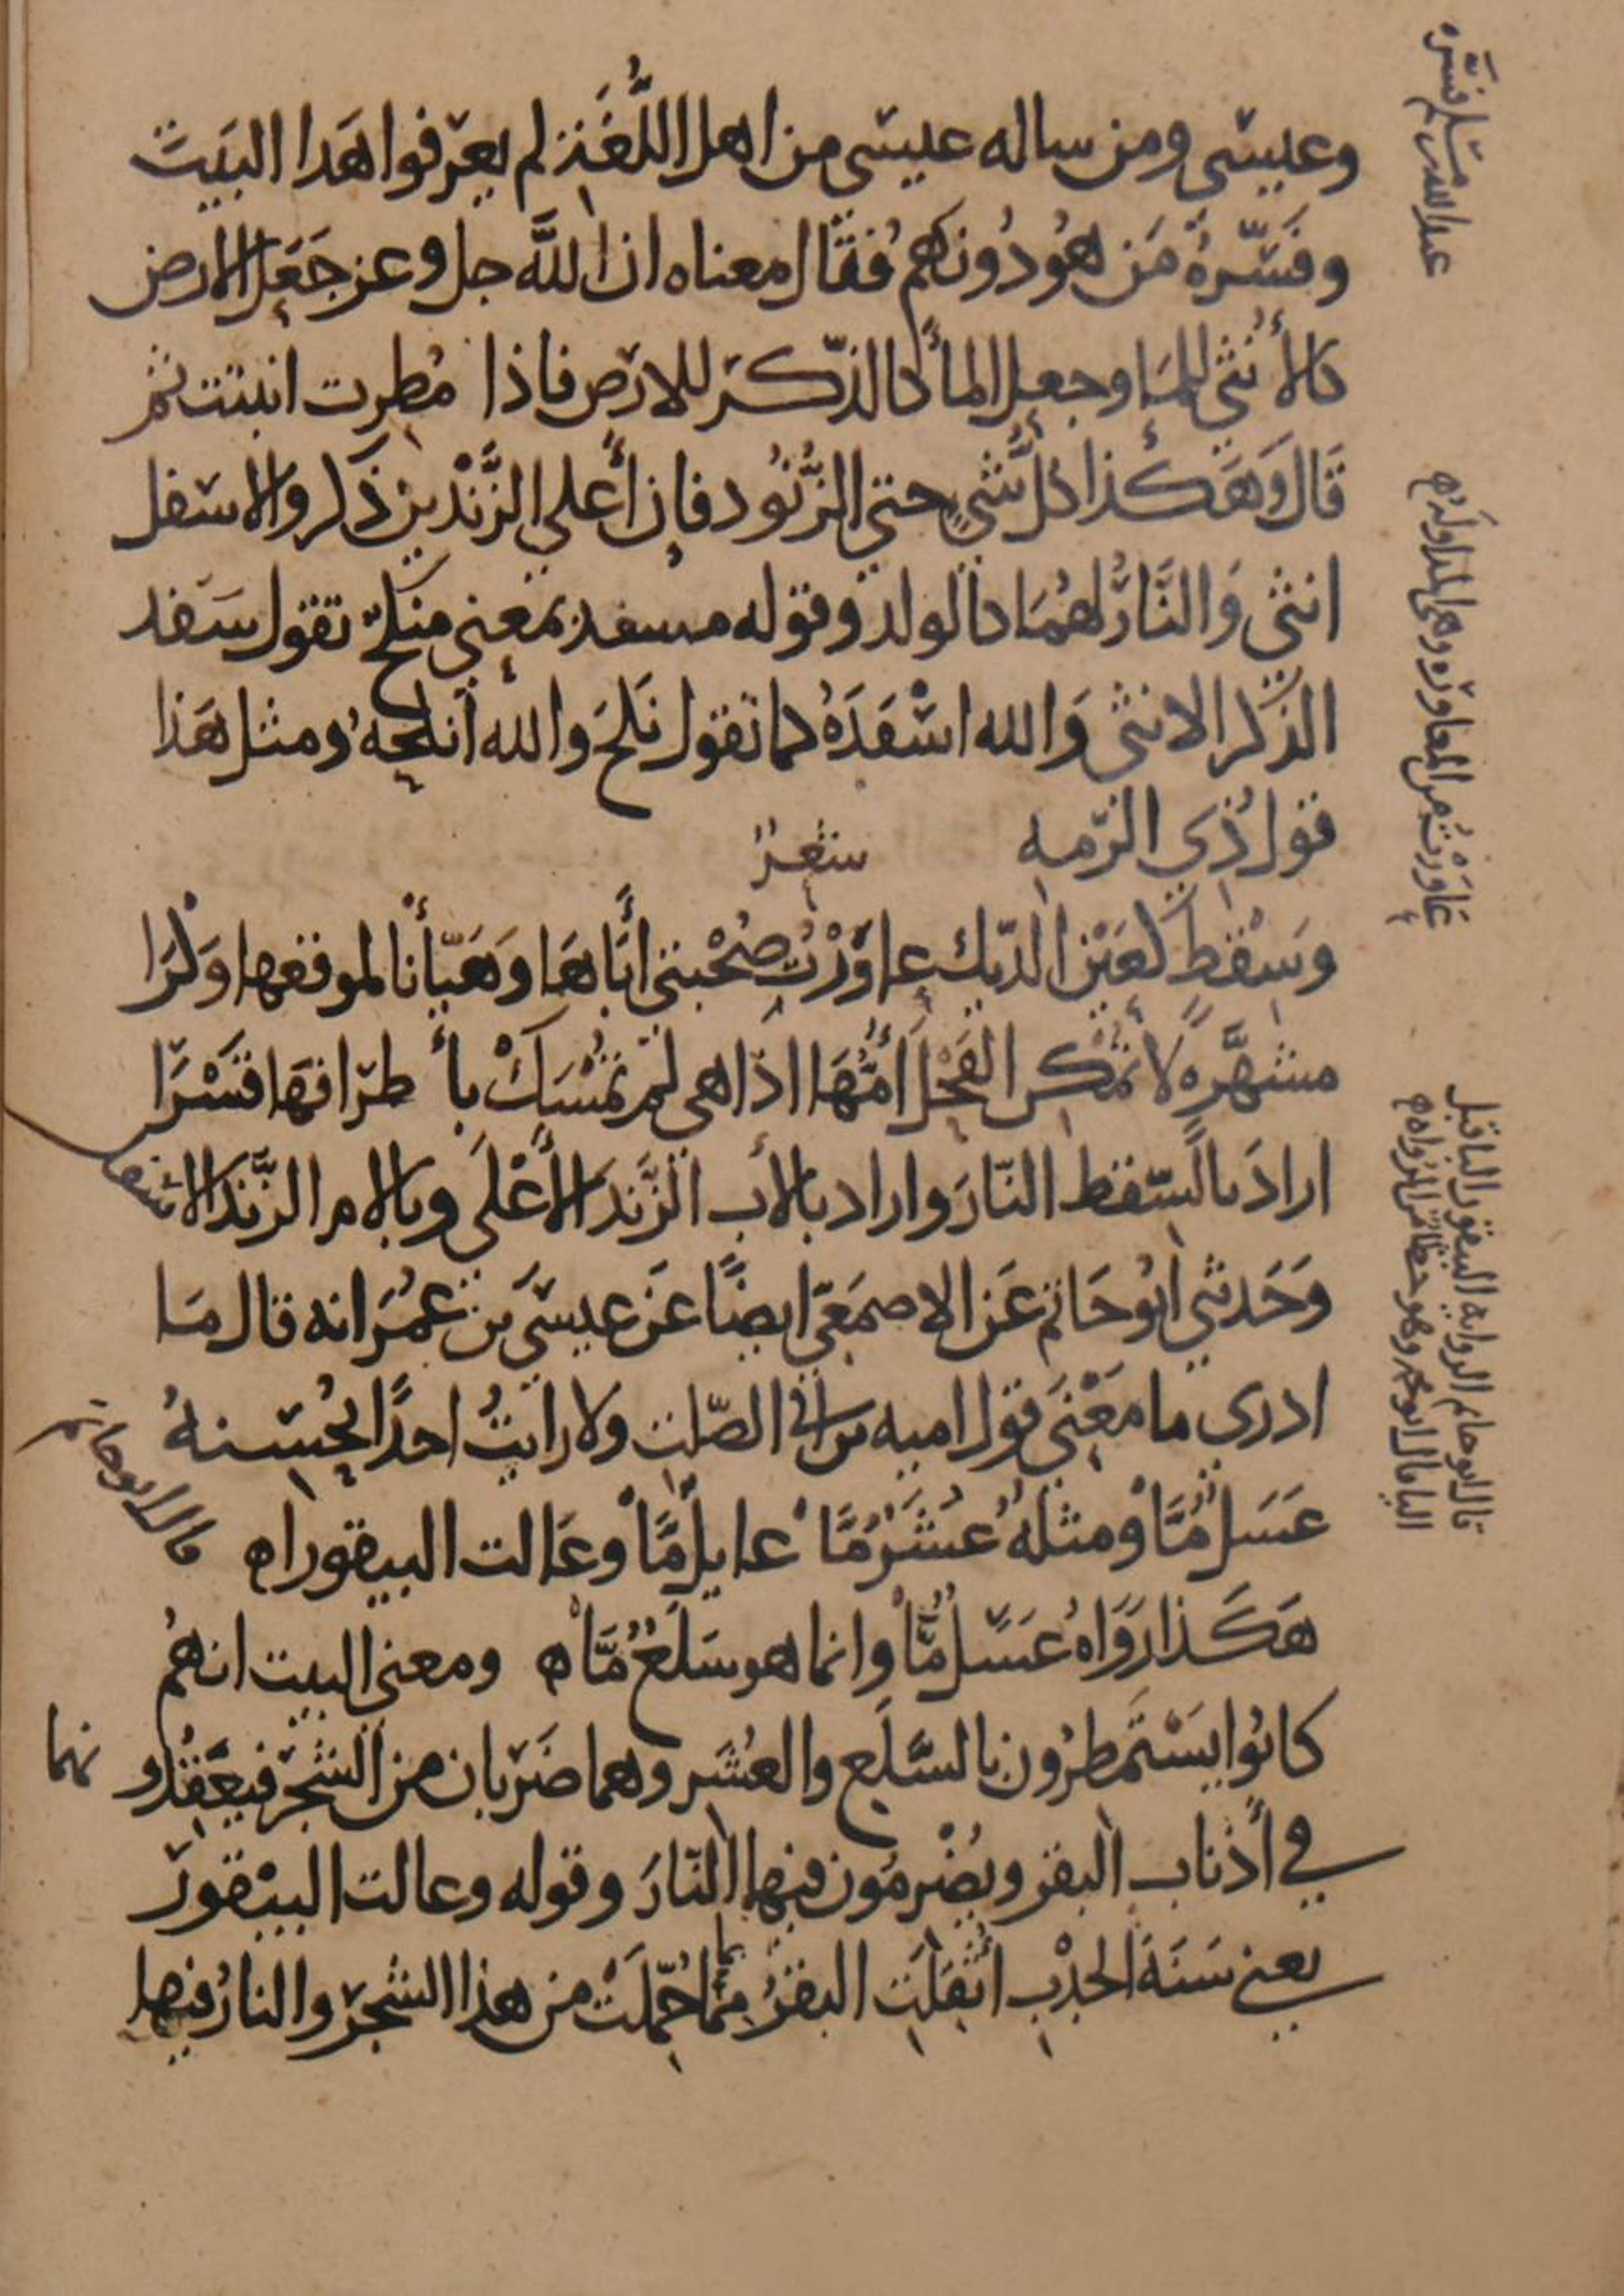 وعيسى ومن ساله عيسى من اهل اللُّغَةِ لم يعرفوا هَذا البَيتَ
وفَسَّرهُ مَن هُو دُونهم فقال معناه ان اللَّه جل وعز جَعَل الارض
كالأُنثى للمَا وجعل المأ كالذّكَر للارض فاذا مُطِرت انبتت ثم
قَال وَهَكذا كل شَيٍ حتى الزُّنُود فإن أَعلى الزَّنْدين ذَكر والاسفل
انثى وَالنَّارُ لهُمَا كالولد وقوله مسفد بمعنى منكح تقول سَفد
الذكر الانثى وَالله اسْفَدَهُ كما تقول نَكحَ والله انكحهُ ومثل هَذا
قول ذي الرّمه شعر
وَسِقْطٍ كَعَيْن الدّيك عاوَرْتُ صُحْبتي أَبَاهَا وَهَيّأنا لموقعها وَكْرَا
مشهَّرهٍ لا تُمكِن الفَحْلَ أُمُّهَا اذا هي لم تُمْسَكْ بأطرافهَا قَسْرَا
ارادَ بالسّقط النّارَ واراد بالأب الزَّند الأَعْلَى وبالام الزَّند الاسفل
وَحَدثني ابُو حَاتم عَن الاصمَعي ايضًا عَن عيسَى بن عمُرَ انه قال مَا
ادري ما مَعْنَى قول اميه بن ابي الصّلت ولا رايتُ احدًا يُحْسنهُ
عَسَلٌ مَّا ومثلهُ عُشَرٌ مَّا عايلٌ مَّا وعَالت البيقورا ه قال ابو حاتم
هَكَذا رَوَاهُ عَسَلٌ مَّا وانما هو سَلَعٌ مَّا ه ومعنى البيت انهُم
كانُوا يَسْتَمطرُون بالسَّلَع والعُشَر وهما ضَرْبان من الشّجَر فيعَقِدُونهما
في أذناب البقر ويُضْرِمُون فيها النّارَ وقوله وعالت البَيْقورَ
يعني سَنَةَ الجَدْبِ اثقلَت البقرُ بما حُمّلَتْ من هذا الشّجَر والنارُ فيها
عبد الله بن مسلم فسّره
عَاوَرْتُ من المعاوره وهى المداوله ه
قال ابو حاتم الروايه البيقور الباقبل
اليا قال ابو محمد وهو خطا من الرواه ه